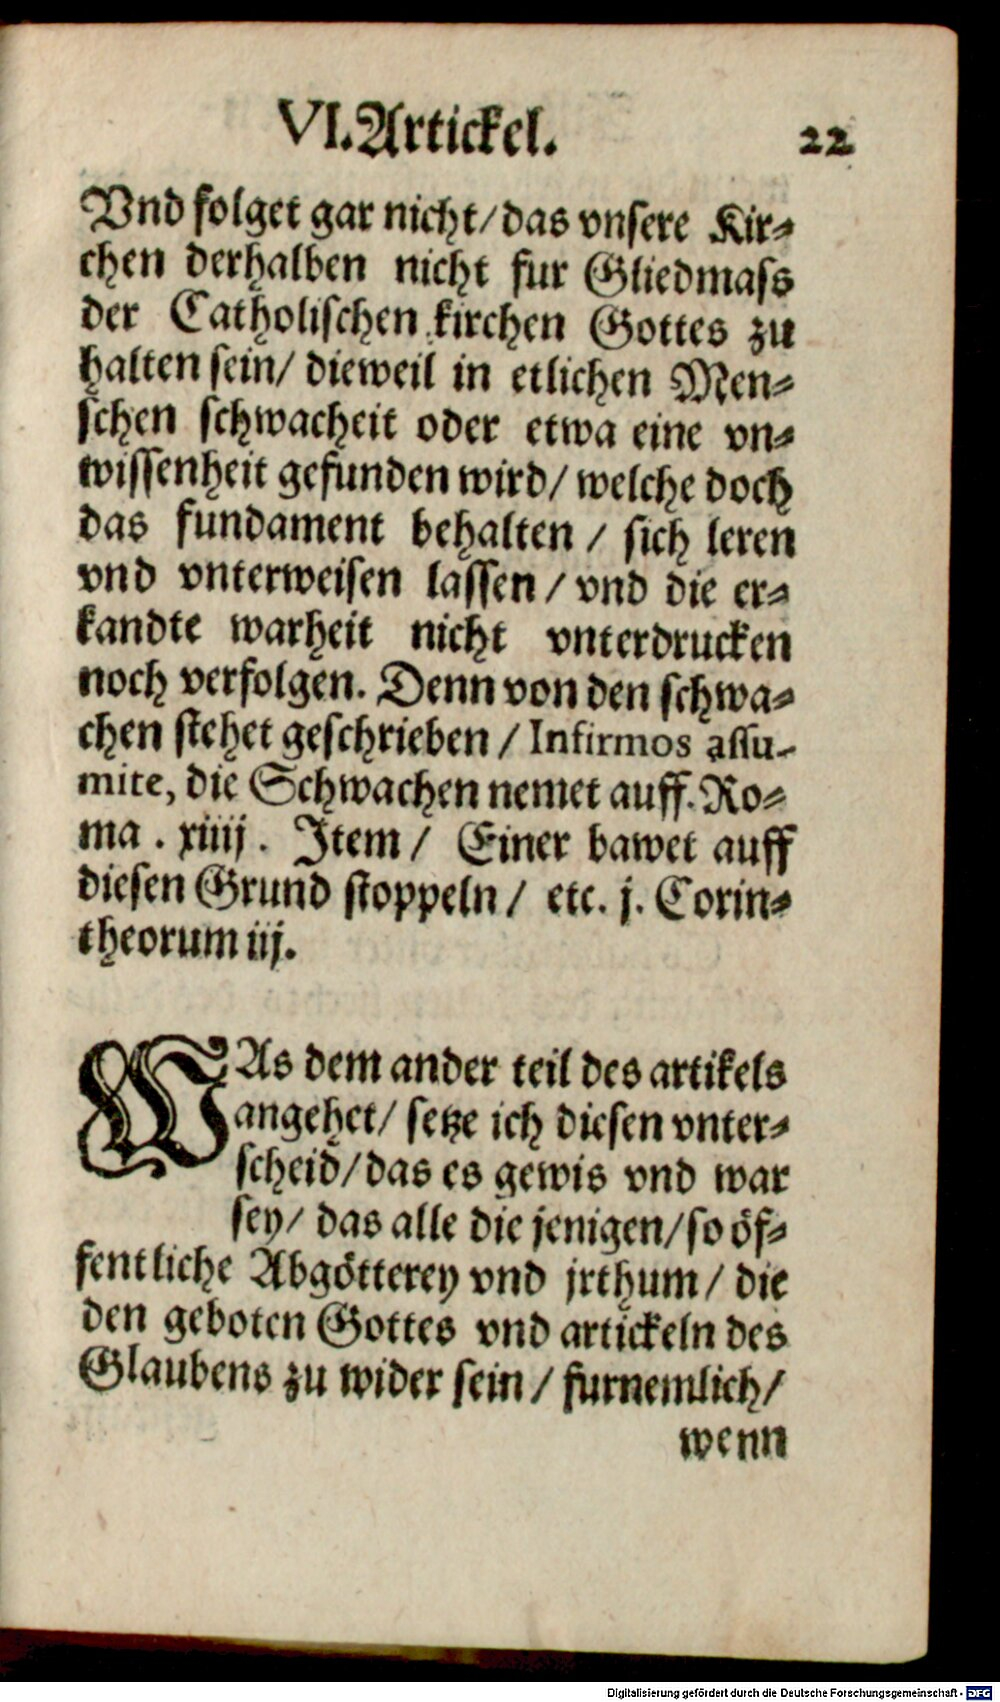 VI. Artickel. 22
Vnd folget gar nicht/ das vnsere Kir-
chen derhalben nicht fur Gliedmass
der Catholischen kirchen Gottes zu
halten sein/ dieweil in etlichen Men-
schen schwacheit oder etwa eine vn-
wissenheit gefunden wird/ welche doch
das fundament behalten / sich leren
vnd vnterweisen lassen / vnd die er-
kandte warheit nicht vnterdrucken
noch verfolgen. Denn von den schwa-
chen stehet geschrieben / Infirmos assu-
mite, die Schwachen nemet auff. Ro-
ma . xiiij . Item / Einer bawet auff
diesen Grund stoppeln / etc. j. Corin-
theorum iij.
WAs dem ander teil des artikels
angehet/ setze ich diesen vnter-
scheid/ das es gewis vnd war
sey/ das alle die jenigen/ so öf-
fentliche Abgötterey vnd jrthum / die
den geboten Gottes vnd artickeln des
Glaubens zu wider sein / furnemlich/
wenn
Digitalisierung gefördert durch die Deutsche Forschungsgemeinschaft - DFG